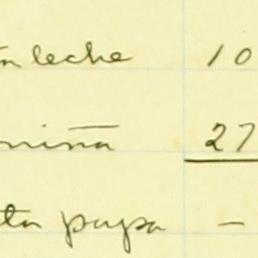 leche 10
niña 27
ta papa -